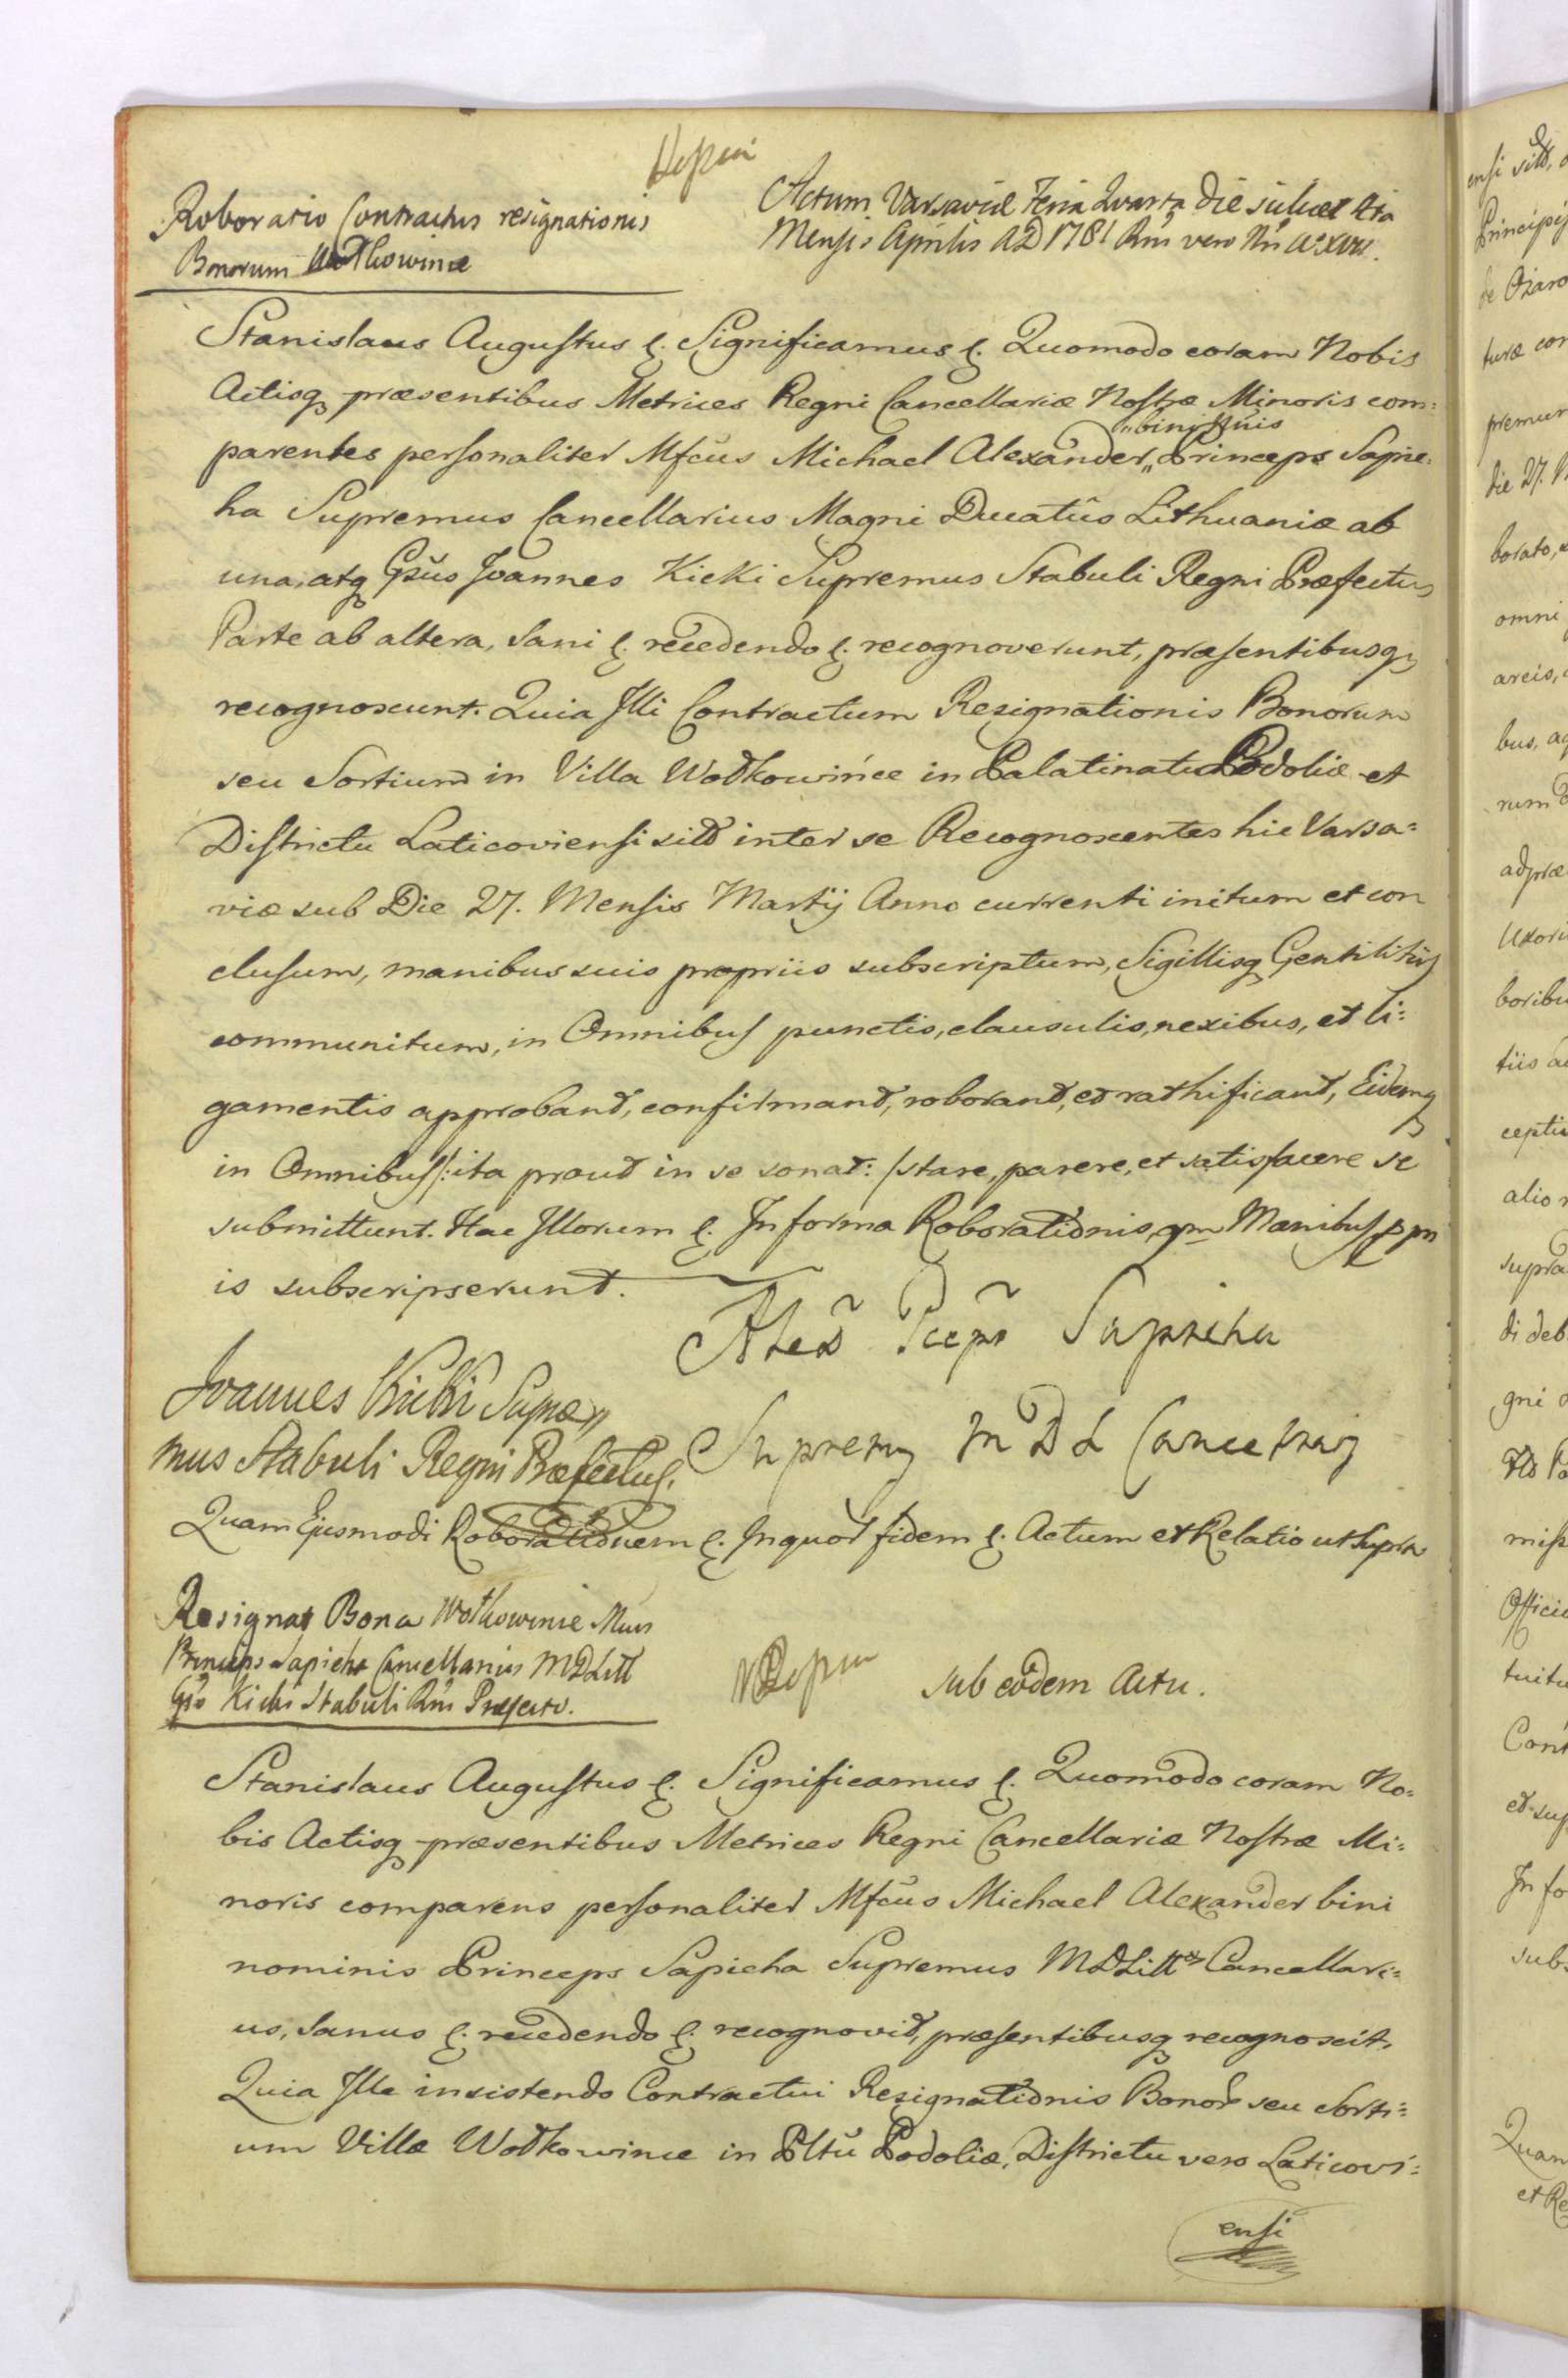 Roboratio Contractus resignationis
Bonorum Wołkowince
Actum Varsaviæ Feria Quarta Die scilicet 4ta
Mensis Aprilis AD 1781 Rni vero Nri Ao XVII.
Stanislaus Augustus &. Significamus &. Quomodo coram Nobis
Actisq præsentibus Metrices Regni Cancellariæ Nostræ Minoris com=
"bini Nnis
parentes personaliter Mfcus Michael Alexander," Princeps Sapie=
ha Supremus Cancellarius Magni Ducatûs Lithuaniæ ab
una, atq Gsus Joannes Kicki Supremus Stabuli Regni Præfectus
Parte ab altera, Sani &. recedendo &. recognoverunt, præsentibusq
recognoscunt. Quia Illi Contractum Resignationis Bonorum
seu Sortium in Villa Wołkowińce in Palatinatu Podoliæ et
Districtu Laticoviensi sit inter se Recognoscentes hic Varsa=
viæ sub Die 27. Mensis Martij Anno currenti initum et con
clusum, manibus suis propriis subscriptum, Sigillisq Gentilitijs
communitum, in Omnibus punctis, clausulis, nexibus, et li=
gamentis approbant, confirmant, roborant, et rathificant, Eidemq
in Omnibus /:ita prout in se sonat:/ stare, parere, et satisfacere se
submittunt. Hac Illorum &. In forma Roborationis, qm Manibus ppri
is subscripserunt.
Alex Pceps Sapieha
Supremg M D L Cancellarig
Joannes Kicki Supre"
mus Stabuli Regni Præfectus.
Quam Ejusmodi Roborationem &. In quor fidem &. Actum et Relatio ut supra
Resignat Bona Wołkowince Mcus
Princeps Sapieha Cancellarius MDLitt
Gso Kicki Stabuli Rni Præfecto.
Sub eodem Actu.
Stanislaus Augustus &. Significamus &. Quomodo coram No=
bis Actisq præsentibus Metrices Regni Cancellariæ Nostræ Mi=
noris comparens personaliter Mfcus Michael Alexander bini
nominis Princeps Sapieha Supremus MDLitt Cancellari=
us, Sanus &. recedendo &. recognovit, præsentibusq recognoscit.
Quia Ille insistendo Contractui Resignationis Bonor seu Sorti=
um Villæ Wołkowince in Pltu Podoliæ, Districtu vero Laticovi=
ensi